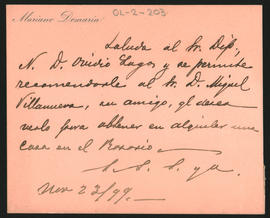 Mariano Demaria
OL-2-203
Saluda al Sr. Dip.
N. D. Ovidio Lagos y se permite
recomendarle al Sr. D. Miguel
Villanueva, su amigo, q desea
verlo para obtener en alquiler una
casa en el Rosario
S. S. S. ya.
Nov 23/99.